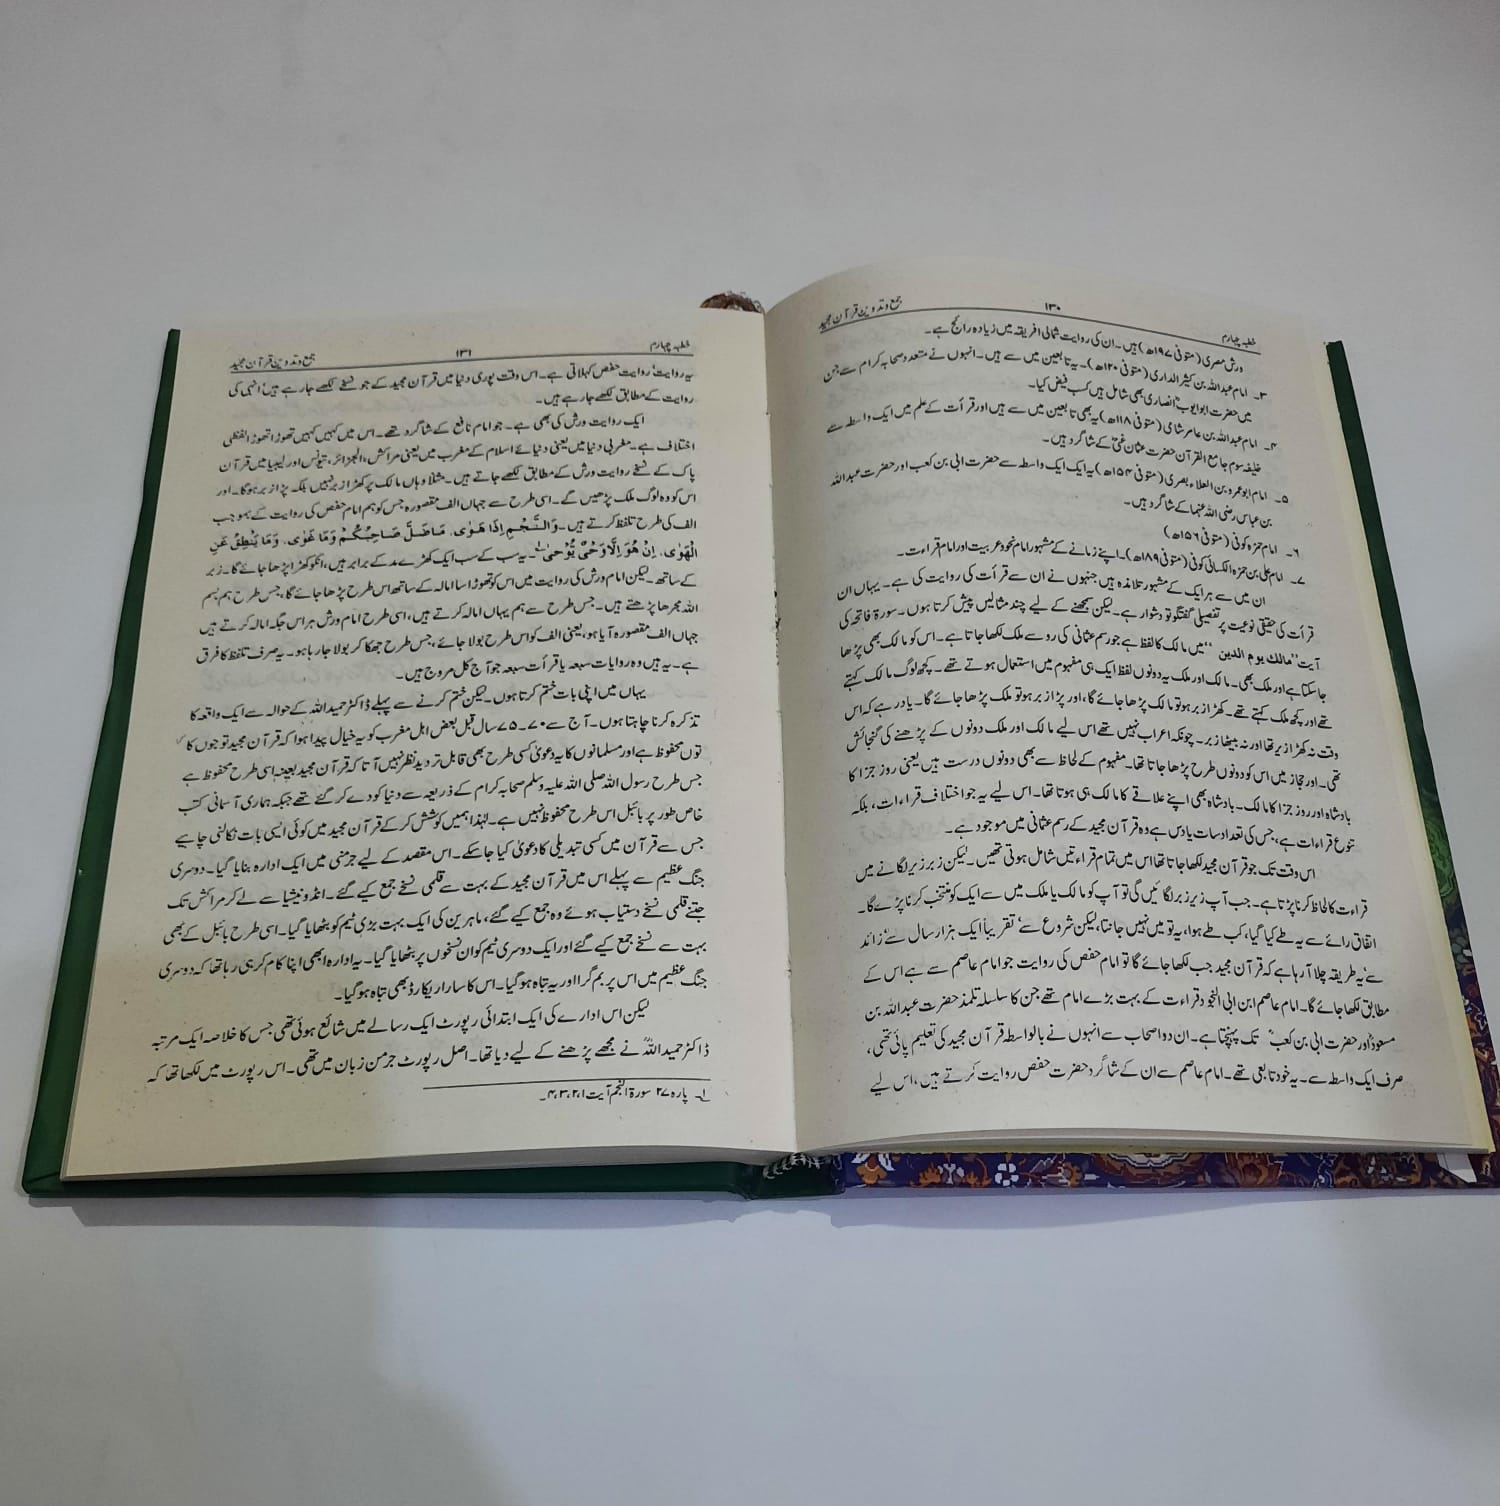 خطبہ چہارم ۱۳۰ جمع و تدوین قرآن مجید
ورش مصری (متوفی ۱۹۷ھ) ہیں۔ ان کی روایت شمالی افریقہ میں زیادہ رائج ہے۔
۳۔ امام عبداللہ بن کثیر الداری (متوفی ۱۲۰ھ)۔ یہ تابعین میں سے ہیں۔ انہوں نے متعدد صحابہ کرام سے جن
میں حضرت ابو ایوب انصاری بھی شامل ہیں کسب فیض کیا۔
۴۔ امام عبداللہ بن عامر شامی (متوفی ۱۱۸ھ) یہ بھی تابعین میں سے ہیں اور قرأت کے علم میں ایک واسطہ سے
خلیفہ سوم جامع القرآن حضرت عثمان غنیؓ کے شاگرد ہیں۔
۵۔ امام ابو عمرو بن العلاء بصری (متوفی ۱۵۴ھ) یہ ایک ایک واسطہ سے حضرت ابی بن کعب اور حضرت عبداللہ
بن عباس رضی اللہ عنہما کے شاگرد ہیں۔
۶۔ امام حمزہ کوفی (متوفی ۱۵۶ھ)
۷۔ امام علی بن حمزہ الکسائی کوفی (متوفی ۱۸۹ھ)۔ اپنے زمانے کے مشہور امام نحو و عربیت اور امام قراءت۔
ان میں سے ہر ایک کے مشہور تلامذہ ہیں جنہوں نے ان سے قرأت کی روایت کی ہے۔ یہاں ان
قرأت کی حقیقی نوعیت پر تفصیلی گفتگو تو دشوار ہے۔ لیکن سمجھنے کے لیے چند مثالیں پیش کرتا ہوں۔ سورۃ فاتحہ کی
آیت ”مالك يوم الدين“ میں مالک کا لفظ ہے جو رسم عثمانی کی رو سے ملک لکھا جاتا ہے۔ اس کو مالک بھی پڑھا
جا سکتا ہے اور ملک بھی۔ مالک اور ملک یہ دونوں لفظ ایک ہی مفہوم میں استعمال ہوتے تھے۔ کچھ لوگ مالک کہتے
تھے اور کچھ ملک کہتے تھے۔ کھڑا زبر ہو تو مالک پڑھا جائے گا، اور پڑا زبر ہو تو ملک پڑھا جائے گا۔ یاد رہے کہ اس
وقت نہ کھڑا زبر تھا اور نہ بیٹھا زبر۔ چونکہ اعراب نہیں تھے اس لیے مالک اور ملک دونوں کے پڑھنے کی گنجائش
تھی۔ اور حجاز میں اس کو دونوں طرح پڑھا جاتا تھا۔ مفہوم کے لحاظ سے بھی دونوں درست ہیں یعنی روز جزا کا
بادشاہ اور روز جزا کا مالک۔ بادشاہ بھی اپنے علاقے کا مالک ہی ہوتا تھا۔ اس لیے یہ جو اختلاف قراءات، بلکہ
تنوع قراءات ہے، جس کی تعداد سات یا دس ہے وہ قرآن مجید کے رسم عثمانی میں موجود ہے۔
اس وقت تک جو قرآن مجید لکھا جاتا تھا اس میں تمام قراءتیں شامل ہوتی تھیں۔ لیکن زبر زیر لگانے میں
قراءت کا لحاظ کرنا پڑتا ہے۔ جب آپ زبر زیر لگائیں گی تو آپ کو مالک یا ملک میں سے ایک کو منتخب کرنا پڑے گا۔
اتفاق رائے سے یہ طے کیا گیا، کب طے ہوا، یہ تو میں نہیں جانتا، لیکن شروع سے، تقریباً ایک ہزار سال سے زائد
سے یہ طریقہ چلا آ رہا ہے کہ قرآن مجید جب لکھا جائے گا تو امام حفص کی روایت جو امام عاصم سے ہے اس کے
مطابق لکھا جائے گا۔ امام عاصم ابن ابی النجود قراءت کے بہت بڑے امام تھے جن کا سلسلہ تلمذ حضرت عبداللہ بن
مسعودؓ اور حضرت ابی بن کعبؓ تک پہنچتا ہے۔ ان دو اصحاب سے انہوں نے بالواسطہ قرآن مجید کی تعلیم پائی تھی،
صرف ایک واسطہ سے۔ یہ خود تابعی تھے۔ امام عاصم سے ان کے شاگرد حضرت حفص روایت کرتے ہیں، اس لیے
خطبہ چہارم ۱۳۱ جمع و تدوین قرآن مجید
یہ روایت، روایت حفص کہلاتی ہے۔ اس وقت پوری دنیا میں قرآن مجید کے جو نسخے لکھے جا رہے ہیں، انہی کی
روایت کے مطابق لکھے جا رہے ہیں۔
ایک روایت ورش کی بھی ہے۔ جو امام نافع کے شاگرد تھے۔ اس میں کہیں کہیں تھوڑا تھوڑا لفظی
اختلاف ہے۔ مغربی دنیا میں یعنی دنیائے اسلام کے مغرب میں یعنی مراکش، الجزائر، تیونس اور لیبیا میں قرآن
پاک کے نسخے روایت ورش کے مطابق لکھے جاتے ہیں۔ مثلاً وہاں مالک پر کھڑا زبر نہیں بلکہ پڑا زبر ہوگا۔ اور
اس کو وہ لوگ ملک پڑھیں گے۔ اسی طرح سے جہاں الف مقصورہ جس کو ہم امام حفص کی روایت کے بموجب
الف کی طرح تلفظ کرتے ہیں۔ وَالنَّجْمِ اِذَا هَوٰى، مَاضَلَّ صَاحِبُكُمْ وَمَا غَوٰى، وَمَا يَنْطِقُ عَنِ
الْهَوٰى، اِنْ هُوَ اِلَّا وَحْىٌ يُّوْحٰى ۱۔ یہ سب کے سب ایک کھڑے مد کے برابر ہیں، انکو کھڑا پڑھا جائے گا۔ زبر
کے ساتھ۔ لیکن امام ورش کی روایت میں اس کو تھوڑا سا امالہ کے ساتھ اس طرح پڑھا جائے گا، جس طرح ہم بسم
اللہ مجرھا پڑھتے ہیں۔ جس طرح سے ہم یہاں امالہ کرتے ہیں، اسی طرح امام ورش ہر اس جگہ امالہ کرتے ہیں
جہاں الف مقصورہ آیا ہو، یعنی الف کو اس طرح بولا جائے، جس طرح جھکا کر بولا جا رہا ہو۔ یہ صرف تلفظ کا فرق
ہے۔ یہ ہیں وہ روایات سبعہ یا قرأت سبعہ جو آج کل مروج ہیں۔
یہاں میں اپنی بات ختم کرتا ہوں۔ لیکن ختم کرنے سے پہلے ڈاکٹر حمید اللہ کے حوالہ سے ایک واقعہ کا
تذکرہ کرنا چاہتا ہوں۔ آج سے ۷۰۔۷۵ سال قبل بعض اہل مغرب کو یہ خیال پیدا ہوا کہ قرآن مجید تو جوں کا
توں محفوظ ہے اور مسلمانوں کا یہ دعویٰ کسی طرح بھی قابل تردید نظر نہیں آتا کہ قرآن مجید بعینہ اسی طرح محفوظ ہے
جس طرح رسول اللہ صلی اللہ علیہ وسلم صحابہ کرام کے ذریعہ سے دنیا کو دے کر گئے تھے جبکہ ہماری آسمانی کتب
خاص طور پر بائبل اس طرح محفوظ نہیں ہے۔ لہٰذا ہمیں کوشش کر کے قرآن مجید میں کوئی ایسی بات نکالنی چاہیے
جس سے قرآن میں کسی تبدیلی کا دعویٰ کیا جا سکے۔ اس مقصد کے لیے جرمنی میں ایک ادارہ بنایا گیا۔ دوسری
جنگ عظیم سے پہلے اس میں قرآن مجید کے بہت سے قلمی نسخے جمع کیے گئے۔ انڈونیشیا سے لے کر مراکش تک
جتنے قلمی نسخے دستیاب ہوئے وہ جمع کیے گئے، ماہرین کی ایک بہت بڑی ٹیم کو بٹھایا گیا۔ اسی طرح بائبل کے بھی
بہت سے نسخے جمع کیے گئے اور ایک دوسری ٹیم کو ان نسخوں پر بٹھایا گیا۔ یہ ادارہ ابھی اپنا کام کر ہی رہا تھا کہ دوسری
جنگ عظیم میں اس پر بم گرا اور یہ تباہ ہو گیا۔ اس کا سارا ریکارڈ بھی تباہ ہو گیا۔
لیکن اس ادارے کی ایک ابتدائی رپورٹ ایک رسالے میں شائع ہوئی تھی جس کا خلاصہ ایک مرتبہ
ڈاکٹر حمید اللہؒ نے مجھے پڑھنے کے لیے دیا تھا۔ اصل رپورٹ جرمن زبان میں تھی۔ اس رپورٹ میں لکھا تھا کہ
۱۔ پارہ ۲۷ سورۃ النجم آیت ۱،۲،۳،۴۔